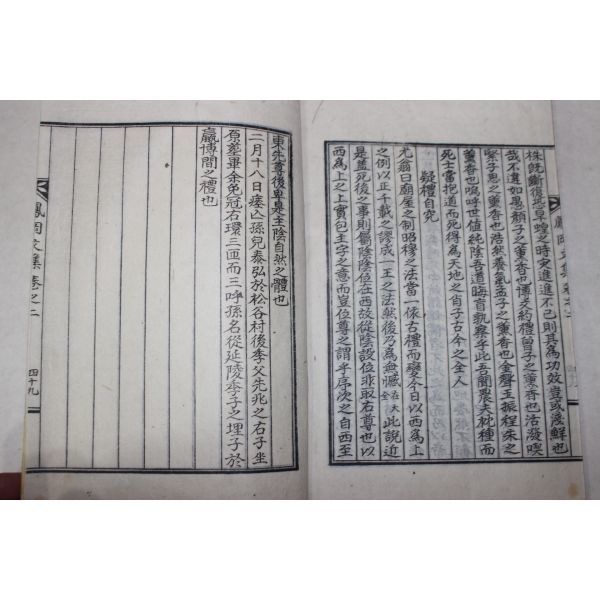 株旣斷後恐旱蝗之時灾進進不已則其爲功效豈或淺鮮也
哉不違如愚顏子之薰香也博文約禮曾子之薰香也活潑喫
緊子思之薰香也浩然養氣孟子之薰香也金聲玉振程朱之
薰香也嗚呼世値純陰吾道晦盲孰察乎此吾蘭農夫枕種而
死士當抱道而死得爲天地之肖子古今之全人
疑禮自究
尤翁曰廟屋之制昭穆之法當一依古禮而變今日以西爲上
之例以正千載之謬成一王之法然後乃爲無憾在大全此說近
是盖死後之事則屬陰陰位在西故從陰設位非取右尊也以
西爲上之上實包主字之意而豈位尊之謂乎序次之自西至
東先尊後卑是主陰自然之體也
二月十八日瘞亡孫兒泰弘於松谷村後季父先兆之右子坐
原葬畢余免冠右環三匝而三呼孫名從延陵季子之埋子於
嬴博間之禮也
鳳岡文集卷之二
四十九